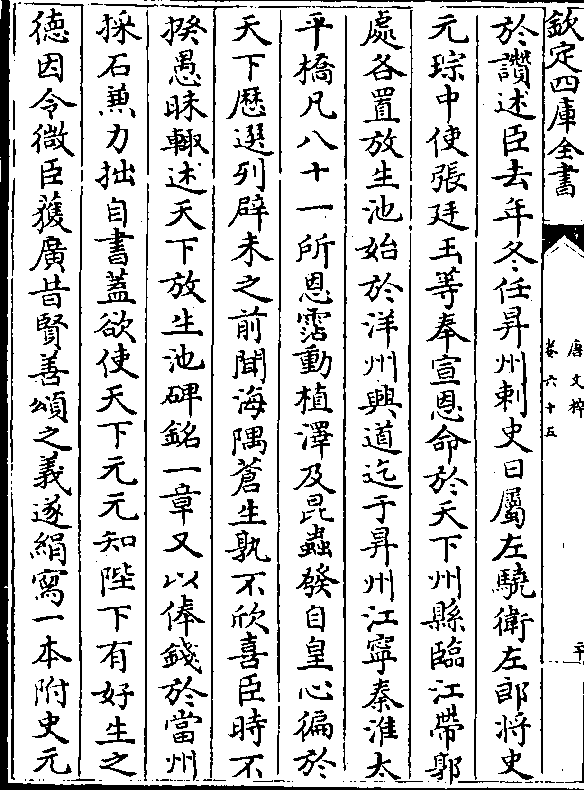 欽定四庫全書
唐文粹
卷六十五
於讚述臣去年冬任昇州刺史日屬左驍衛左郎将史
元琮中使張廷玉等奉宣恩命於天下州縣臨江帶郭
處各置放生池始於洋州興道迄于昇州江寧秦淮太
平橋凡八十一所恩霑動植澤及昆蟲發自皇心徧於
天下歴選列辟未之前聞海隅蒼生孰不欣喜臣時不
揆愚昧輙述天下放生池碑銘一章又以俸錢於當州
採石兼力拙自書蓋欲使天下元元知陛下有好生之
徳因令微臣獲廣昔賢善頌之義遂絹寫一本附史元